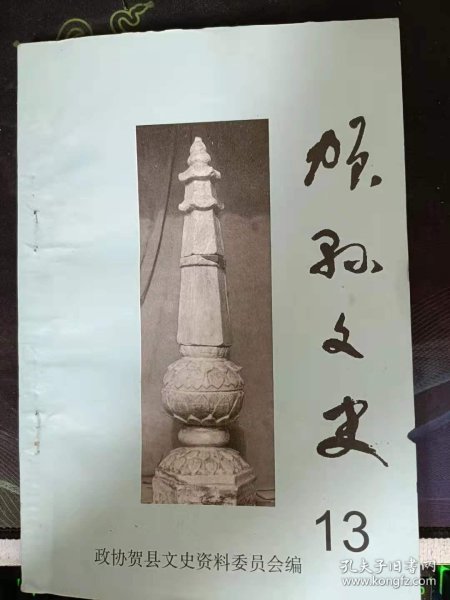 贺县文史
13
政协贺县文史资料委员会编
孔夫子旧书网
www.kongfz.com